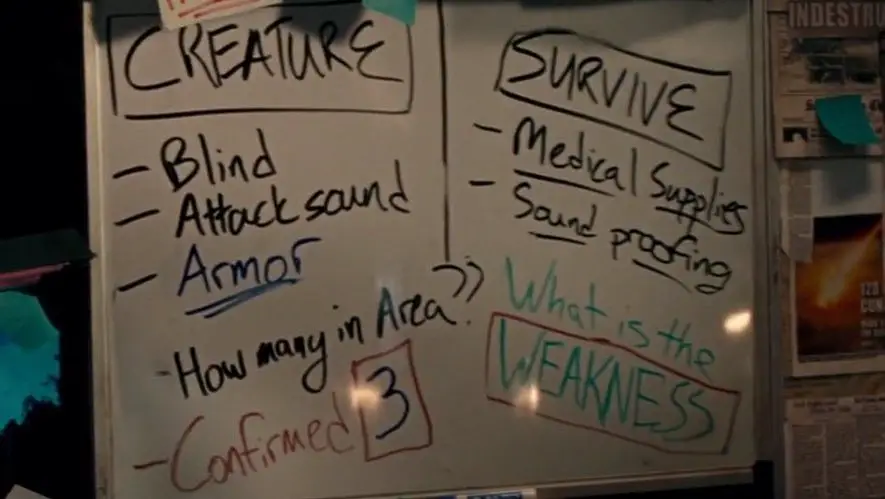 CREATURE
- Blind
- Attack sound
- Armor
- How many in Area??
- Confirmed 3
SURVIVE
- Medical Supplies
- Sound proofing
What is the
WEAKNESS
INDESTRU